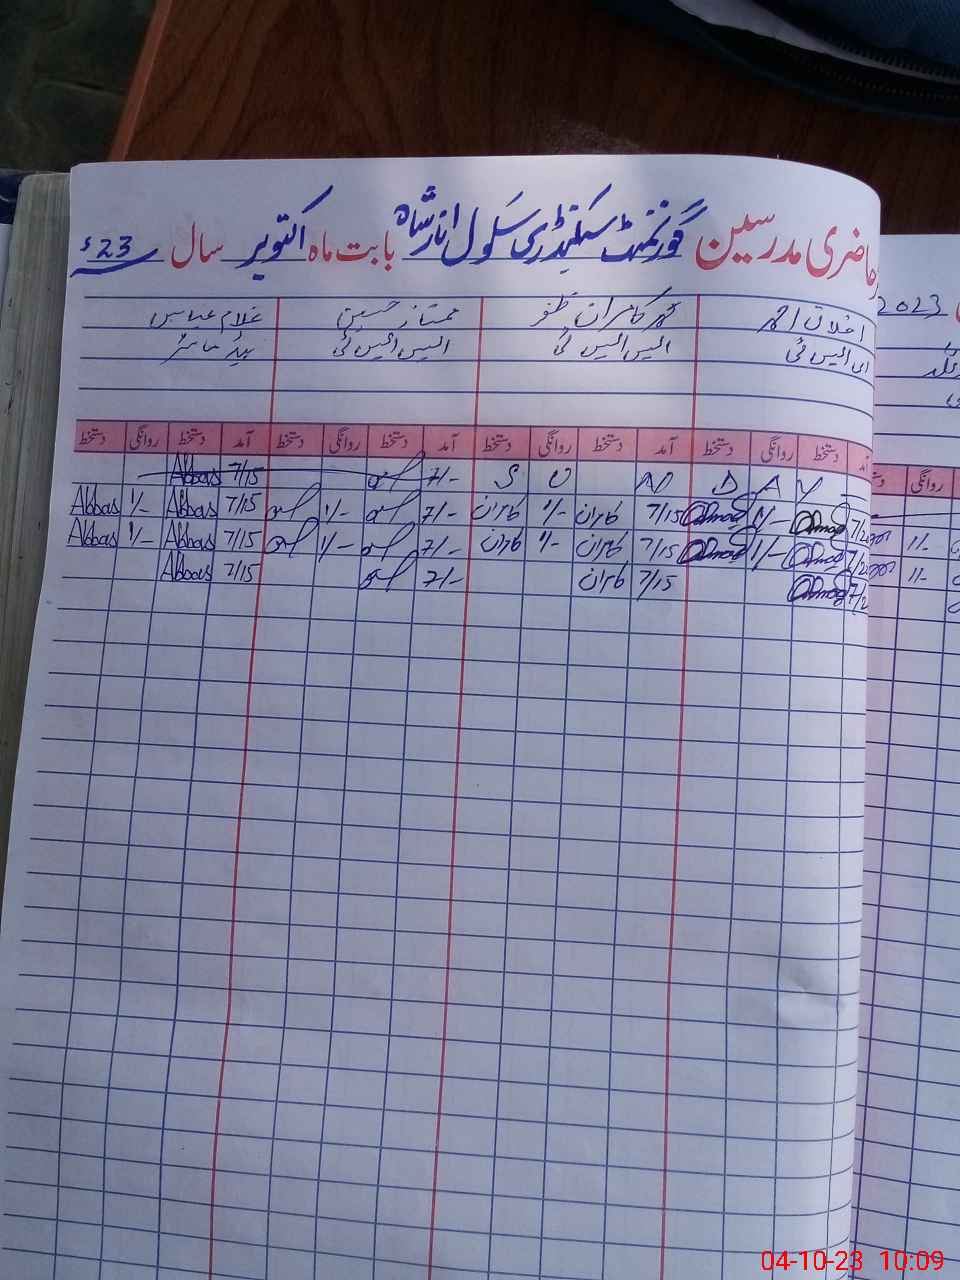 حاضری مدرسین گورنمنٹ سیکنڈری سکول انار شاہ بابت ماہ اکتوبر سال 23ء
2023
اخلاق احمد محمد کامران ظفر ممتاز حسین غلام عباس
ای ایس ٹی ایس ایس ٹی ایس ایس ٹی ہیڈ ماسٹر
آمد دستخط روانگی دستخط آمد دستخط روانگی دستخط آمد دستخط روانگی دستخط آمد دستخط روانگی دستخط
S U N D A Y 7/- 7/15 Abbas
7/2 Ahmad 1/- Ahmad 7/15 کامران 1/- کامران 7/- 1/- 7/15 Abbas 1/- Abbas
7/2 Ahmad 1/- Ahmad 7/15 کامران 1/- کامران 7/- 1/- 7/15 Abbas 1/- Abbas
7/2 Ahmad 7/15 کامران 7/- 7/15 Abbas
روانگی
1/-
1/-
04-10-23 10:09